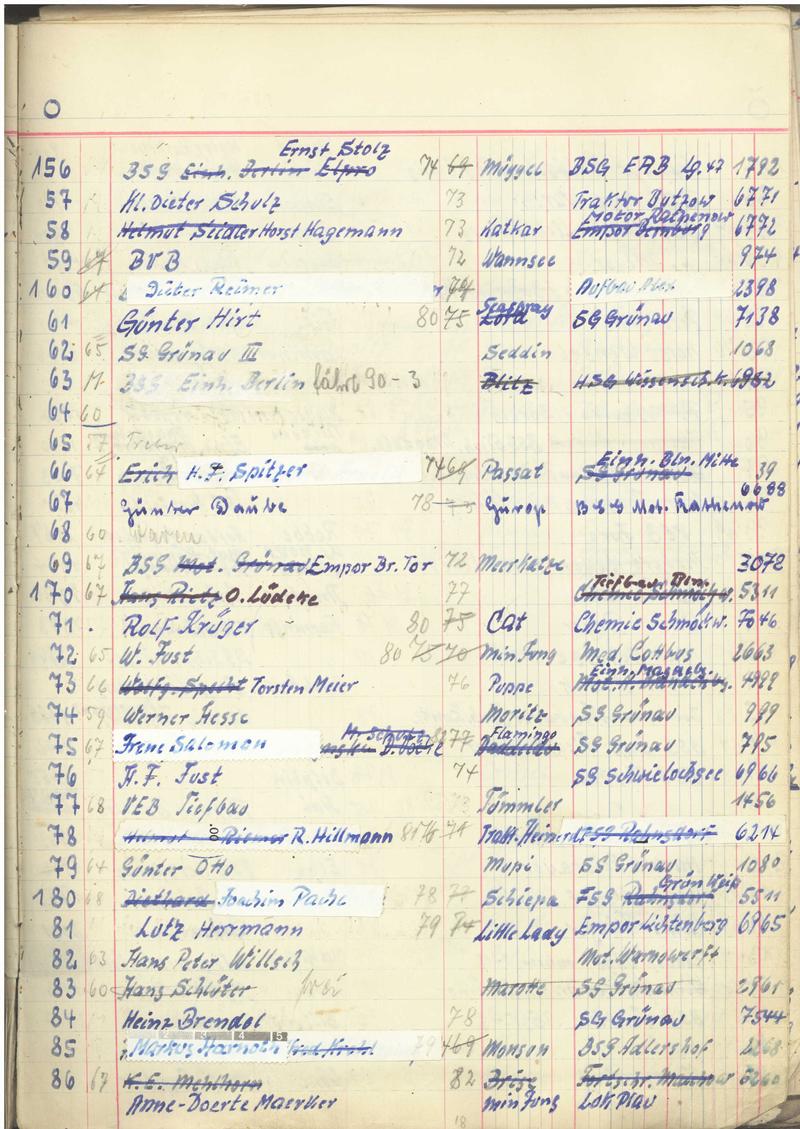 O
Ernst Stolz
156 BSG Einh. Berlin Elpro 74 69 Müggel BSG EAB Lg. 47 1792
57 Kl. Dieter Schulz 73 Traktor Butzow 6771
Motor Rathenow
58 Helmut Seidler Horst Hagemann 73 Katkar Empor Bernburg 6772
59 64 BVB 72 Wannsee 974
160 64 Dieter Reimer 74 Aufbau 2398
Seaspray
61 Günter Hirt 80 75 Lord SG Grünau 7138
62 65 SG Grünau III Seddin 1068
63 BSG Einh. Berlin fährt 90-3 Blitz HSG Wissensch. K. 6982
64 60
65 57 Treber
Einh. Bln. Mitte
66 64 Erich H. F. Spitzer 74 69 Passat SG Grünau 39
6688
67 Günter Daube 78 75 BSG Mot. Rathenow
68 60 Waren
69 67 BSG Mot. Grünau Empor Br. Tor 72 Meerkatze 3072
Tiefbau Bln.
170 67 Hans Rietz O. Lüdeke 77 Chemie Schmöckw. 5311
71 Rolf Krüger 80 75 Cat Chemie Schmöckw. 7046
72 65 W. Fust 80 75 70 Min Jung Med. Cottbus 2663
Einh. Magdeb.
73 66 Wolfg. Specht Torsten Meier 76 Puppe
74 59 Werner Hesse Moritz SG Grünau 999
Flamingo
75 67 Irene Salomon 77 SG Grünau 795
76 H. F. Fust 74 SG Schwielochsee 6966
77 68 VEB Tiefbau 73 Tümmler 1456
78 Helmut Riemer R. Hillmann 81 76 74 Trakt. Heinersd. FSG Rahnsdorf 6214
79 64 Günter Otto Mupi SG Grünau 1080
Grün Weiß
180 68 Diethard Joachim Pache 78 77 Schiepa FSG Rahnsdorf 5511
81 Lutz Herrmann 79 74 Little Lady Empor Lichtenberg 6965
82 63 Hans Peter Willsch Mot. Warnowerft
83 60 Hans Schlüter frei Marotte SG Grünau 2961
84 Heinz Brendel 78 SG Grünau 7544
3 4 5
85 Markus Harnoth 79 69 Monsun BSG Adlershof 2268
86 67 K. E. Mehlhorn 82 Brise Fortschr. 5260
Anne-Doerte Maerker min Jung Lok Plau
18